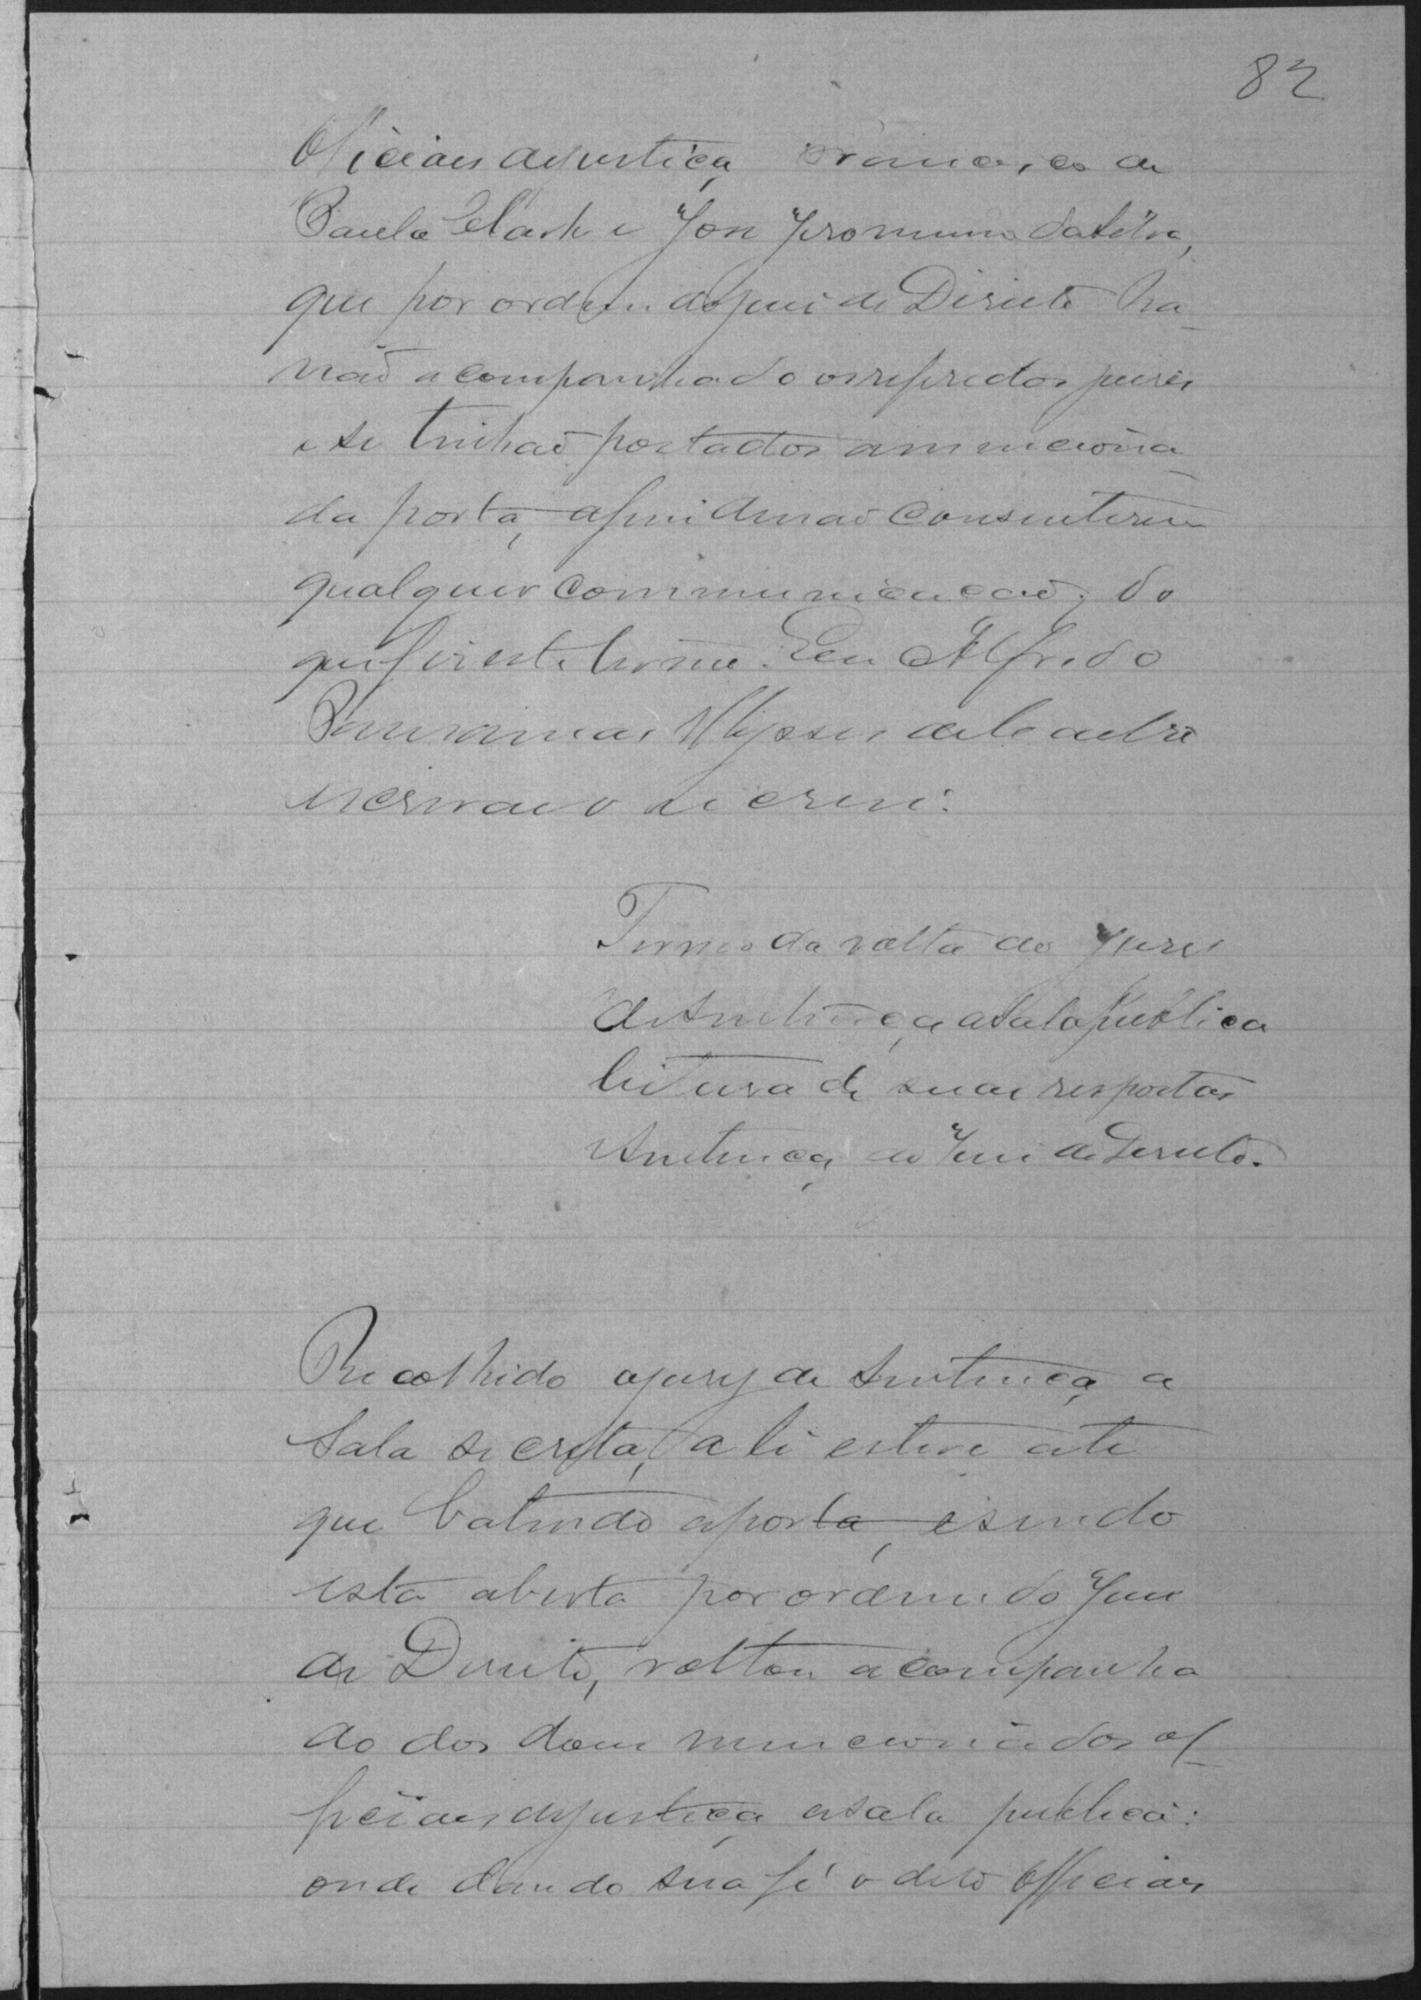 82
Officiaes de justiça Francisco de
Paula e José Jeronimo da Silva,
que por ordem do juiz de Direito ha-
vião acompanhado os referidos juizes
e se tinhão postados a menciona-
da porta, afim de não consentirem
qualquer communicação; do
que fiz este termo. Eu Alfredo
Ulysses de Castro
escrivão o escrevi.
Termo da volta do jury
de sentença a sala publica
leitura de suas respostas
e sentença do Juiz de Direito.
Recolhido o jury de sentença a
sala secreta, ali esteve até
que batendo a porta, e sendo
esta aberta por ordem do Juiz
de Direito, voltou acompanha
do dos dous mencionados of-
ficiaes de justiça a sala publica:
onde dando sua fé o dito Officiaes